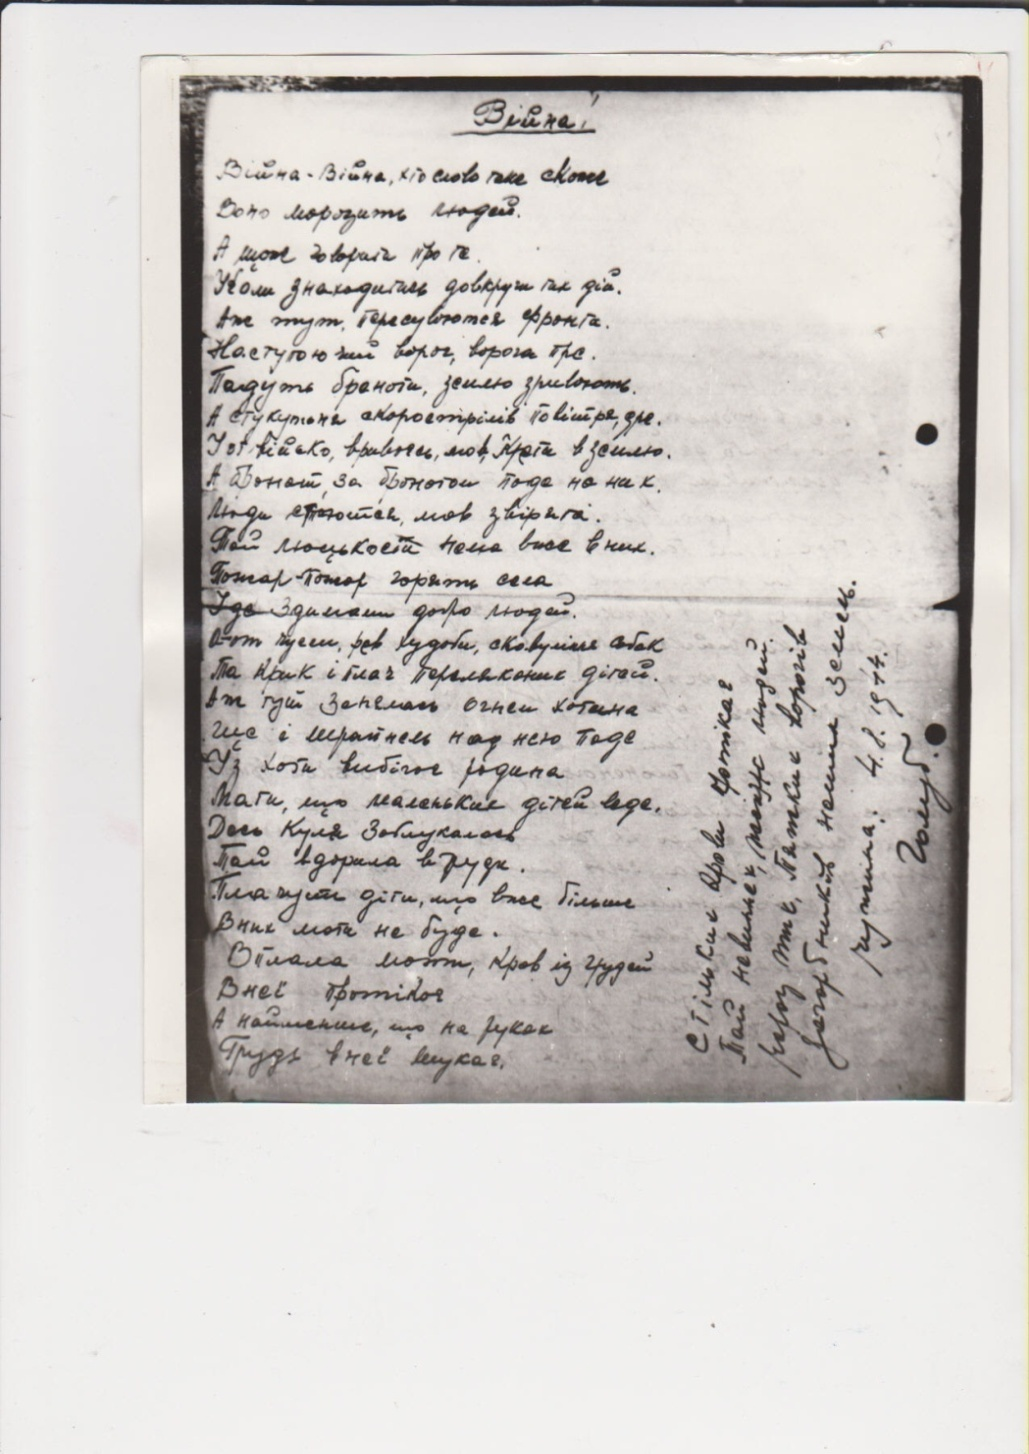 Війна!
Війна-Війна, хто слово таке скаже
Воно морозить людей.
А щож говорити про те
Коли знаходитись довкруги тих дій.
Аж тут, пересуваются фронти.
Наступаючий ворог, ворога пре.
Падуть гранати, землю зривають.
А стукутня скорострілів повітря, дре.
І от військо, вриваесь, мов, Крети в землю.
А Гранат, за Гранатом паде на них.
Люди, мов звірята.
Тай люцькости нема вже в них.
Пожар-Пожар горять села
З димами добро людей.
А от чуєм, рев худоби, сковуління собак
Та Крик і плач переляканих дітей.
Аж тут занялась огнем хатина
Ще і шрапнель над нею паде
Із хати вибігає родина
Мати, що маленьких дітей веде.
Десь Куля Заблукалась
Тай вдорила в груди.
Плачуть діти, що вже більше
В них мати не буде.
Впала мати, Кров із грудей
В неї протікає
А найменше, що на руках
Грудь в неї шукає.
Стільки Крови потікає
Тай невинних, людей.
через тих, ворогів
загарбників наших земель.
4.8.1944.
Голуб.